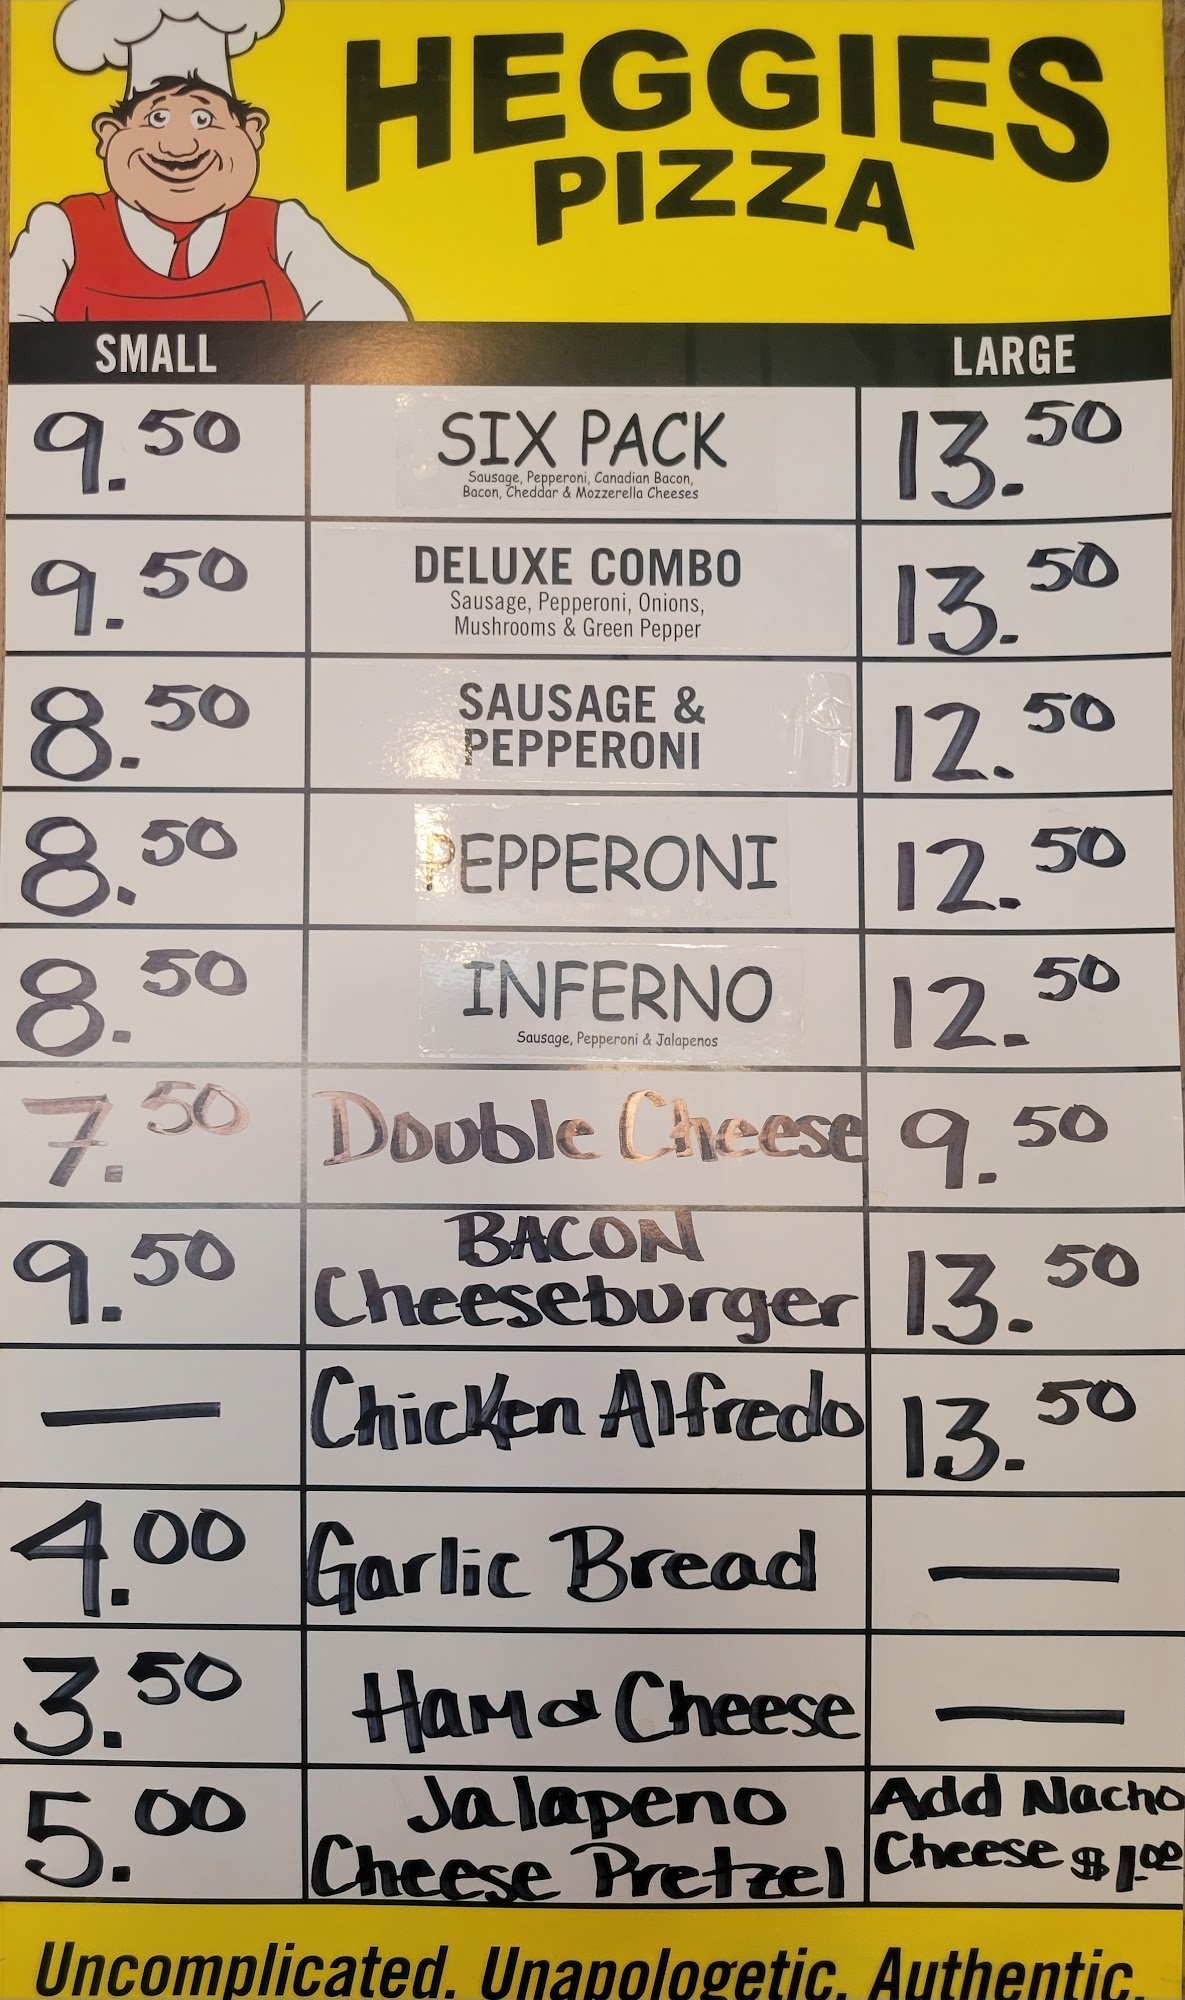 HEGGIES
PIZZA
SMALL LARGE
9.50 SIX PACK 13.50
Sausage, Pepperoni, Canadian Bacon,
Bacon, Cheddar & Mozzerella Cheeses
9.50 DELUXE COMBO 13.50
Sausage, Pepperoni, Onions,
Mushrooms & Green Pepper
8.50 SAUSAGE & 12.50
PEPPERONI
8.50 PEPPERONI 12.50
8.50 INFERNO 12.50
Sausage, Pepperoni & Jalapenos
7.50 Double Cheese 9.50
9.50 BACON 13.50
Cheeseburger
— Chicken Alfredo 13.50
4.00 Garlic Bread —
3.50 Ham & Cheese —
5.00 Jalapeno Add Nacho
Cheese Pretzel Cheese $1.00
Uncomplicated. Unapologetic. Authentic.